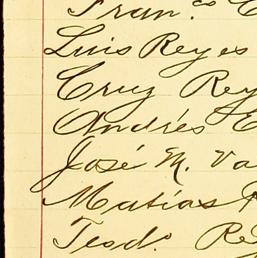 Fran.co C
Luis Reyes
Cruz Rey
Andrés E
José M. Va
Matías R
Teodo. Re